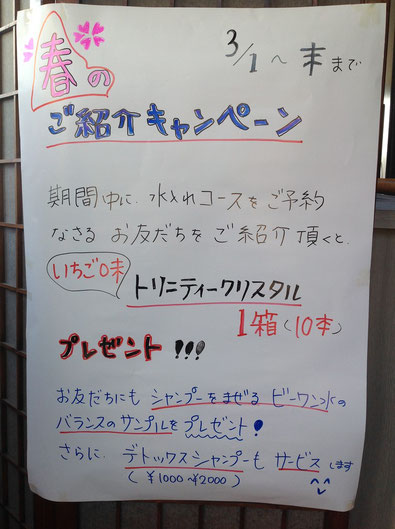 3/1〜末まで
春の
ご紹介キャンペーン
期間中に、水入れコースをご予約
なさるお友だちをご紹介頂くと、
いちご味
トリニティークリスタル
1箱(10本)
プレゼント!!!
お友だちにもシャンプーをまぜるビーワン水の
バランスのサンプルをプレゼント!
さらに、デトックスシャンプーもサービスします
(¥1000〜¥2000)